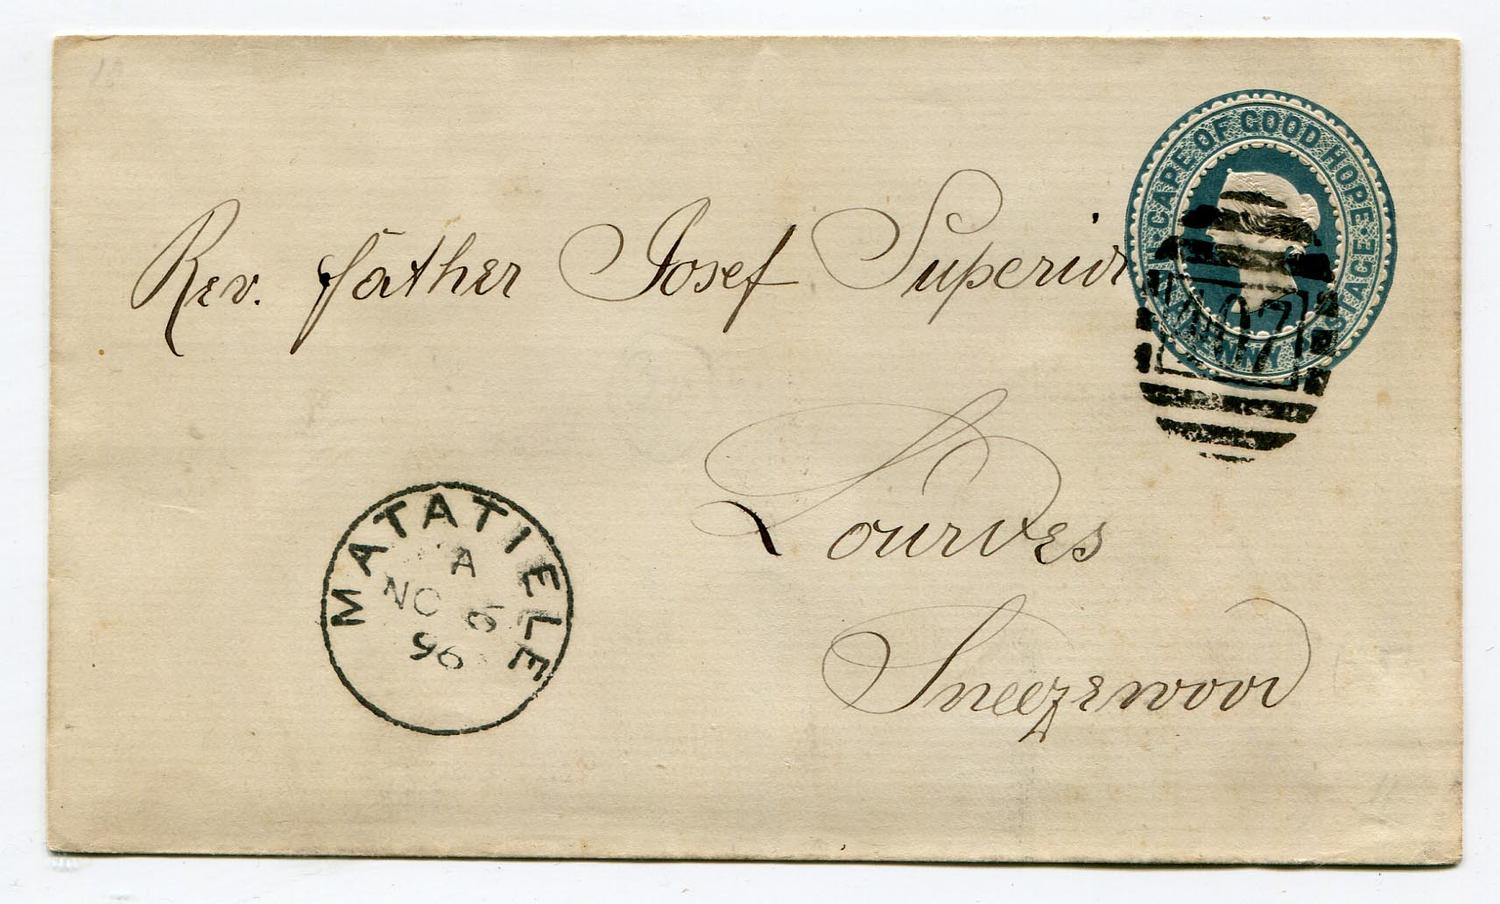 CAPE OF GOOD HOPE
PENNY POSTAGE
Rev. father Josef Superior
Lourdes
Sneezewood
MATATIELE
A
NO 6
96